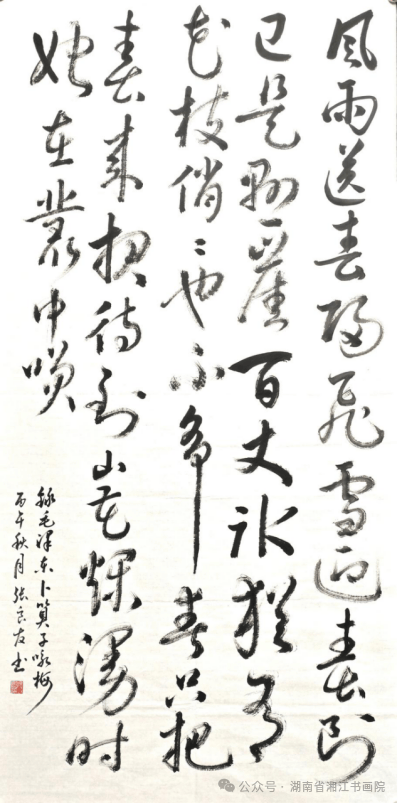 风雨送春归飞雪迎春到
已是悬崖百丈冰犹有
花枝俏〻也不争春只把
春来报待到山花烂漫时
她在丛中笑
录毛泽东卜算子咏梅
丙午秋月张良友书
公众号·湖南省湘江书画院